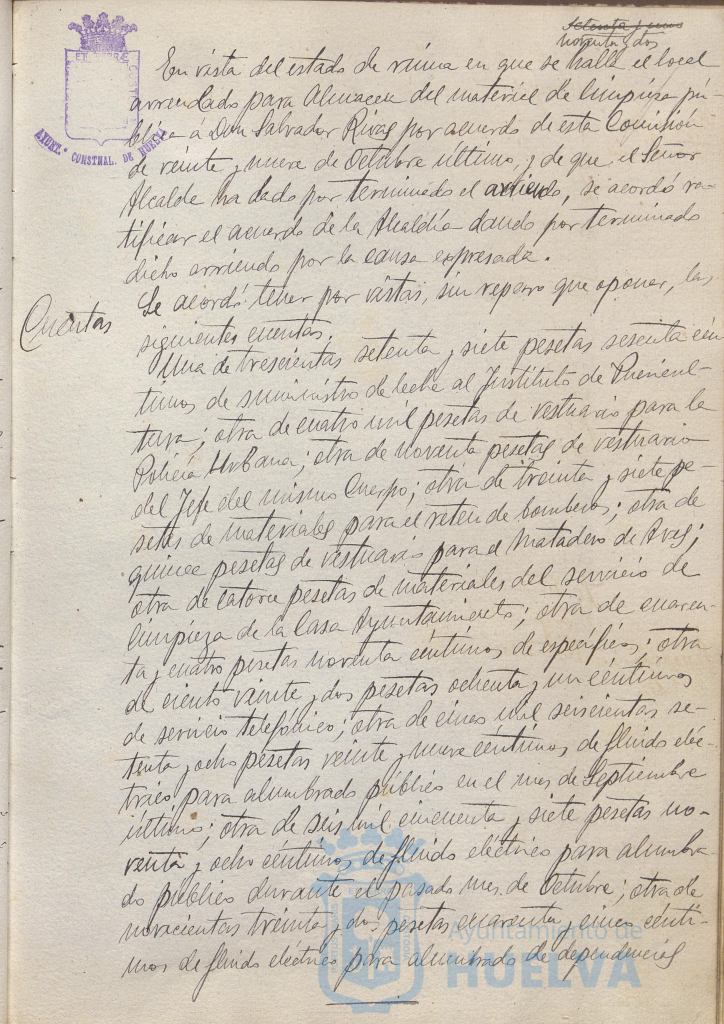 Setenta y uno
noventa y dos
AYUNT.º CONSTNAL. DE HUELVA
En vista del estado de ruina en que se halla el local
arrendado para Almacen del material de limpieza pú-
blica á Don Salvador Rivas por acuerdo de esta Comisión
de veinte y nueve de Octubre último, y de que el Señor
Alcalde ha dado por terminado el arriendo, se acordó ra-
tificar el acuerdo de la Alcaldía dando por terminado
dicho arriendo por la causa expresada.
Cuentas
Se acordó tener por vistas, sin reparo que oponer, las
siguientes cuentas.
Una de trescientas setenta y siete pesetas sesenta cén
timos de suministro de leche al Instituto de Puericul-
tura; otra de cuatro mil pesetas de vestuario para la
Policia Urbana; otra de noventa pesetas de vestuario
del Jefe del mismo Cuerpo; otra de treinta y siete pe-
setas de materiales para el reten de bomberos; otra de
quince pesetas de vestuario para el Matadero de Aves;
otra de catorce pesetas de materiales del servicio de
limpieza de la Casa Ayuntamiento; otra de cuaren-
ta y cuatro pesetas noventa céntimos de específicos; otra
de ciento veinte y dos pesetas ochenta y un céntimos
de servicio telefónico; otra de cinco mil seiscientas se-
tenta y ocho pesetas veinte y nueve céntimos de fluido eléc-
trico para alumbrado público en el mes de Septiembre
último; otra de seis mil cincuenta y siete pesetas no-
venta y ocho céntimos de fluido eléctrico para alumbra-
do público durante el pasado mes de Octubre; otra de
novecientas treinta y dos pesetas cuarenta y cinco cénti-
mos de fluido eléctrico para alumbrado de dependencias
Ayuntamiento de
HUELVA